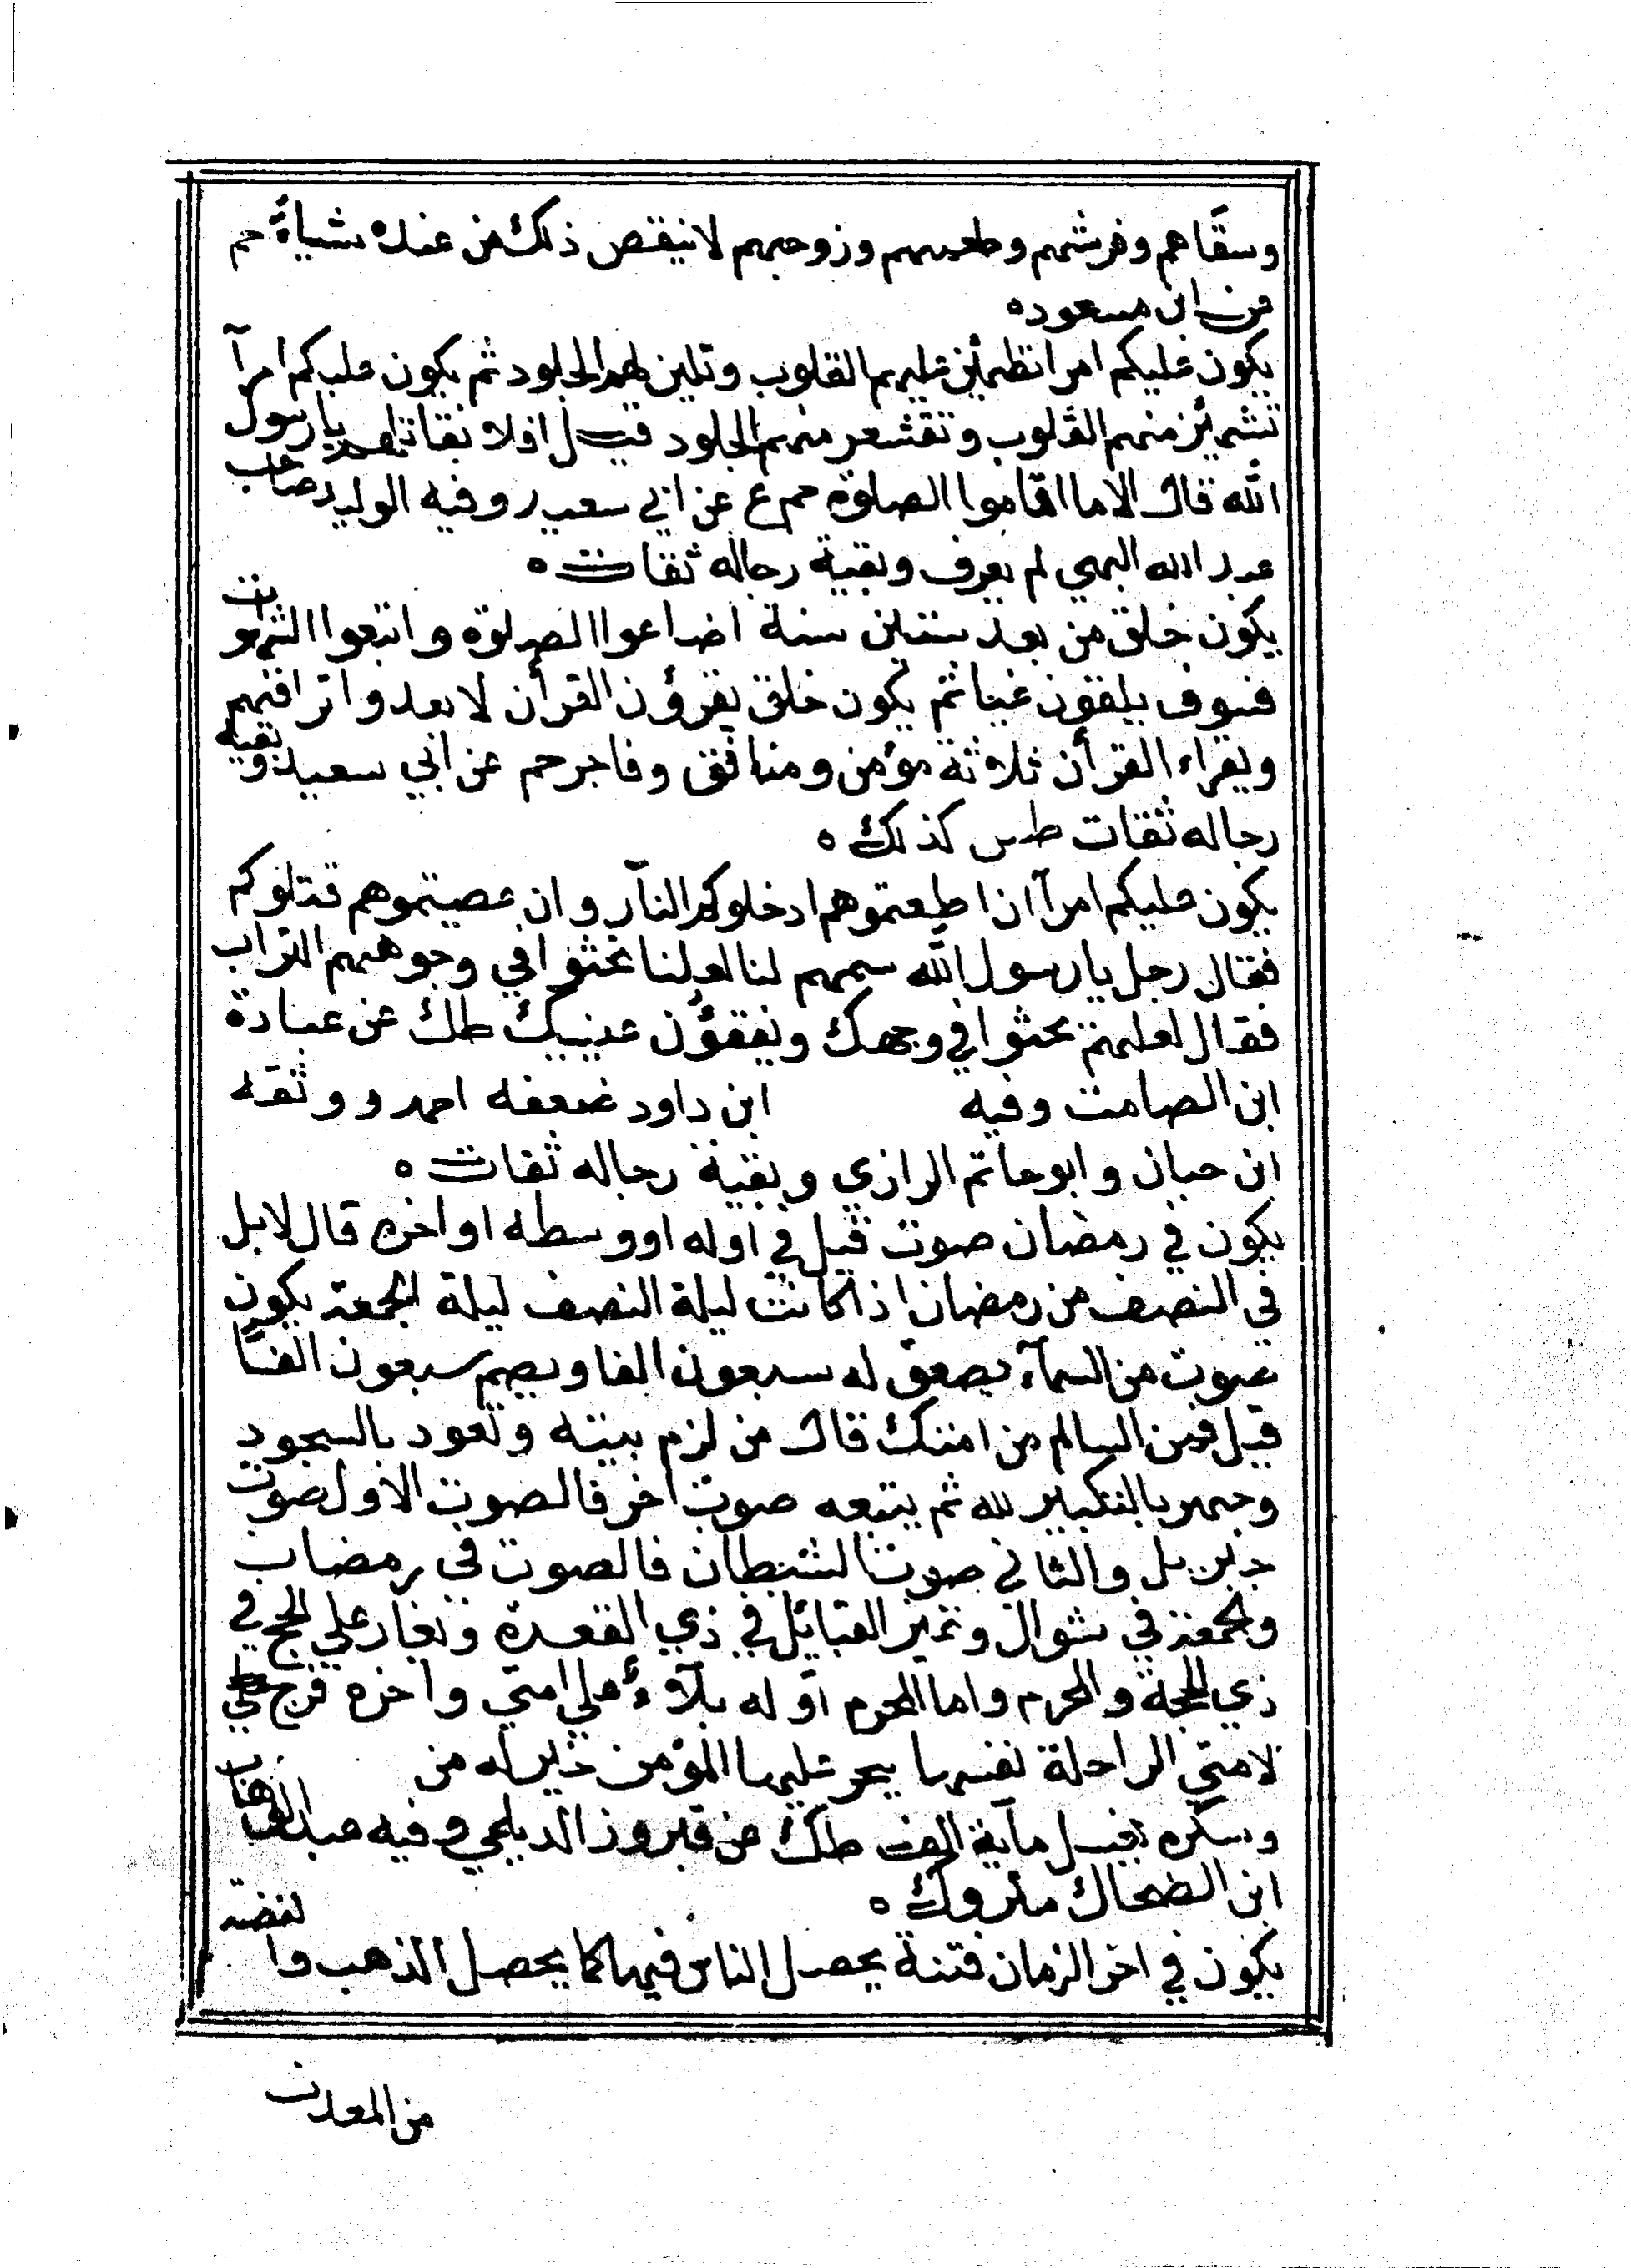 وسقاهم وفرشهم وطعمهم وزوجهم لا ينقص ذلك من عنده شيأ حم
من ابن مسعود ه
يكون عليكم امرا تطمئن عليهم القلوب وتلين لهم الجلود ثم يكون عليكم امرآ
تشمئز منهم القلوب وتقشعر منهم الجلود قيل افلا نقاتلهم يارسول
الله قال لا ما اقاموا الصلوة حم ع عن ابي سعيد وفيه الوليد صاحب
عبد الله البهي لم يعرف وبقية رجاله ثقات ه
يكون خلق من بعد ستين سنة اضاعوا الصلوة واتبعوا الشهوات
فسوف يلقون غيا ثم يكون خلق يقرؤن القرأن لا يعدوا تراقيهم
ويقراء القرأن ثلاثة مؤمن ومنافق وفاجر حم عن ابي سعيد وبقية
رجاله ثقات طس كذلك ه
يكون عليكم امرآ ان اطعتموهم ادخلوكم النار وان عصيتموهم قتلوكم
فقال رجل يا رسول الله سمهم لنا لعلنا نحثوا في وجوههم التراب
فقال لعلهم يحثوا في وجهك ويفقؤن عينيك طك عن عبادة
ابن الصامت وفيه ابن داود ضعفه احمد ووثقه
ابن حبان وابو حاتم الرازي وبقية رجاله ثقات ه
يكون في رمضان صوت قيل في اوله او وسطه او اخره قال لا بل
في النصف من رمضان اذا كانت ليلة النصف ليلة الجمعة يكون
صوت من السمآء يصعق له سبعون الفا ويصم سبعون الفًا
قيل فمن السالم من امتك قال من لزم بيته وتعود بالسجود
وجهر بالتكبير لله ثم يتبعه صوت اخر فالصوت الاول صوت
جبريل والثاني صوت الشيطان فالصوت في رمضان
والمعمعة في شوال وتميز القبائل في ذي القعدة ويغار علي الحج في
ذي الحجة والمحرم واما المحرم اوله بلآء علي امتي واخره فرج
لامتي الراحلة نفسها ينجو عليها المؤمن خير له من
وسكره بغل مآية الف طك عن فيروز الديلمي وفيه عبد الوهاب
ابن الضحاك متروك ه
يكون في اخر الزمان فتنة يحصل الناس فيها كما يحصل الذهب والفضة
من المعدن